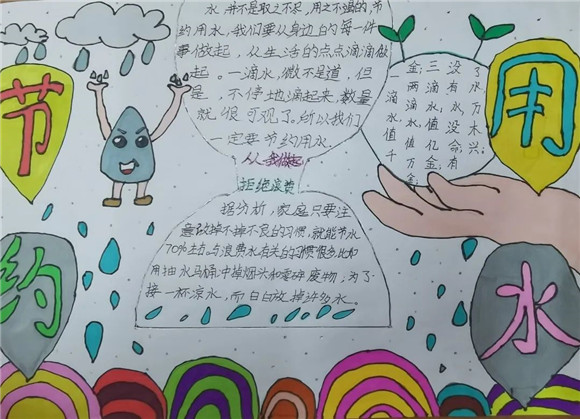 节
约
用
水
水 并不是取之不尽,用之不竭的,节
约用水,我们要从身边的每一件
事做起,从生活的点点滴滴做
起。一滴水,微不足道,但
是 不停地滴起来,数量
就很可观了,所以我们
一定要节约用水.
我做起
拒绝浪费
据分析,家庭只要注
意改掉不掉不良的习惯,就能节水
70%左右,与浪费水有关的习惯很多比如
用抽水马桶冲掉烟头和零碎废物,为了
接一杯凉水,而白白放掉许多水。
一滴水值千
金;两滴水,值万金;
三滴水,值亿金;
没有水,没命;有
了水万木兴;